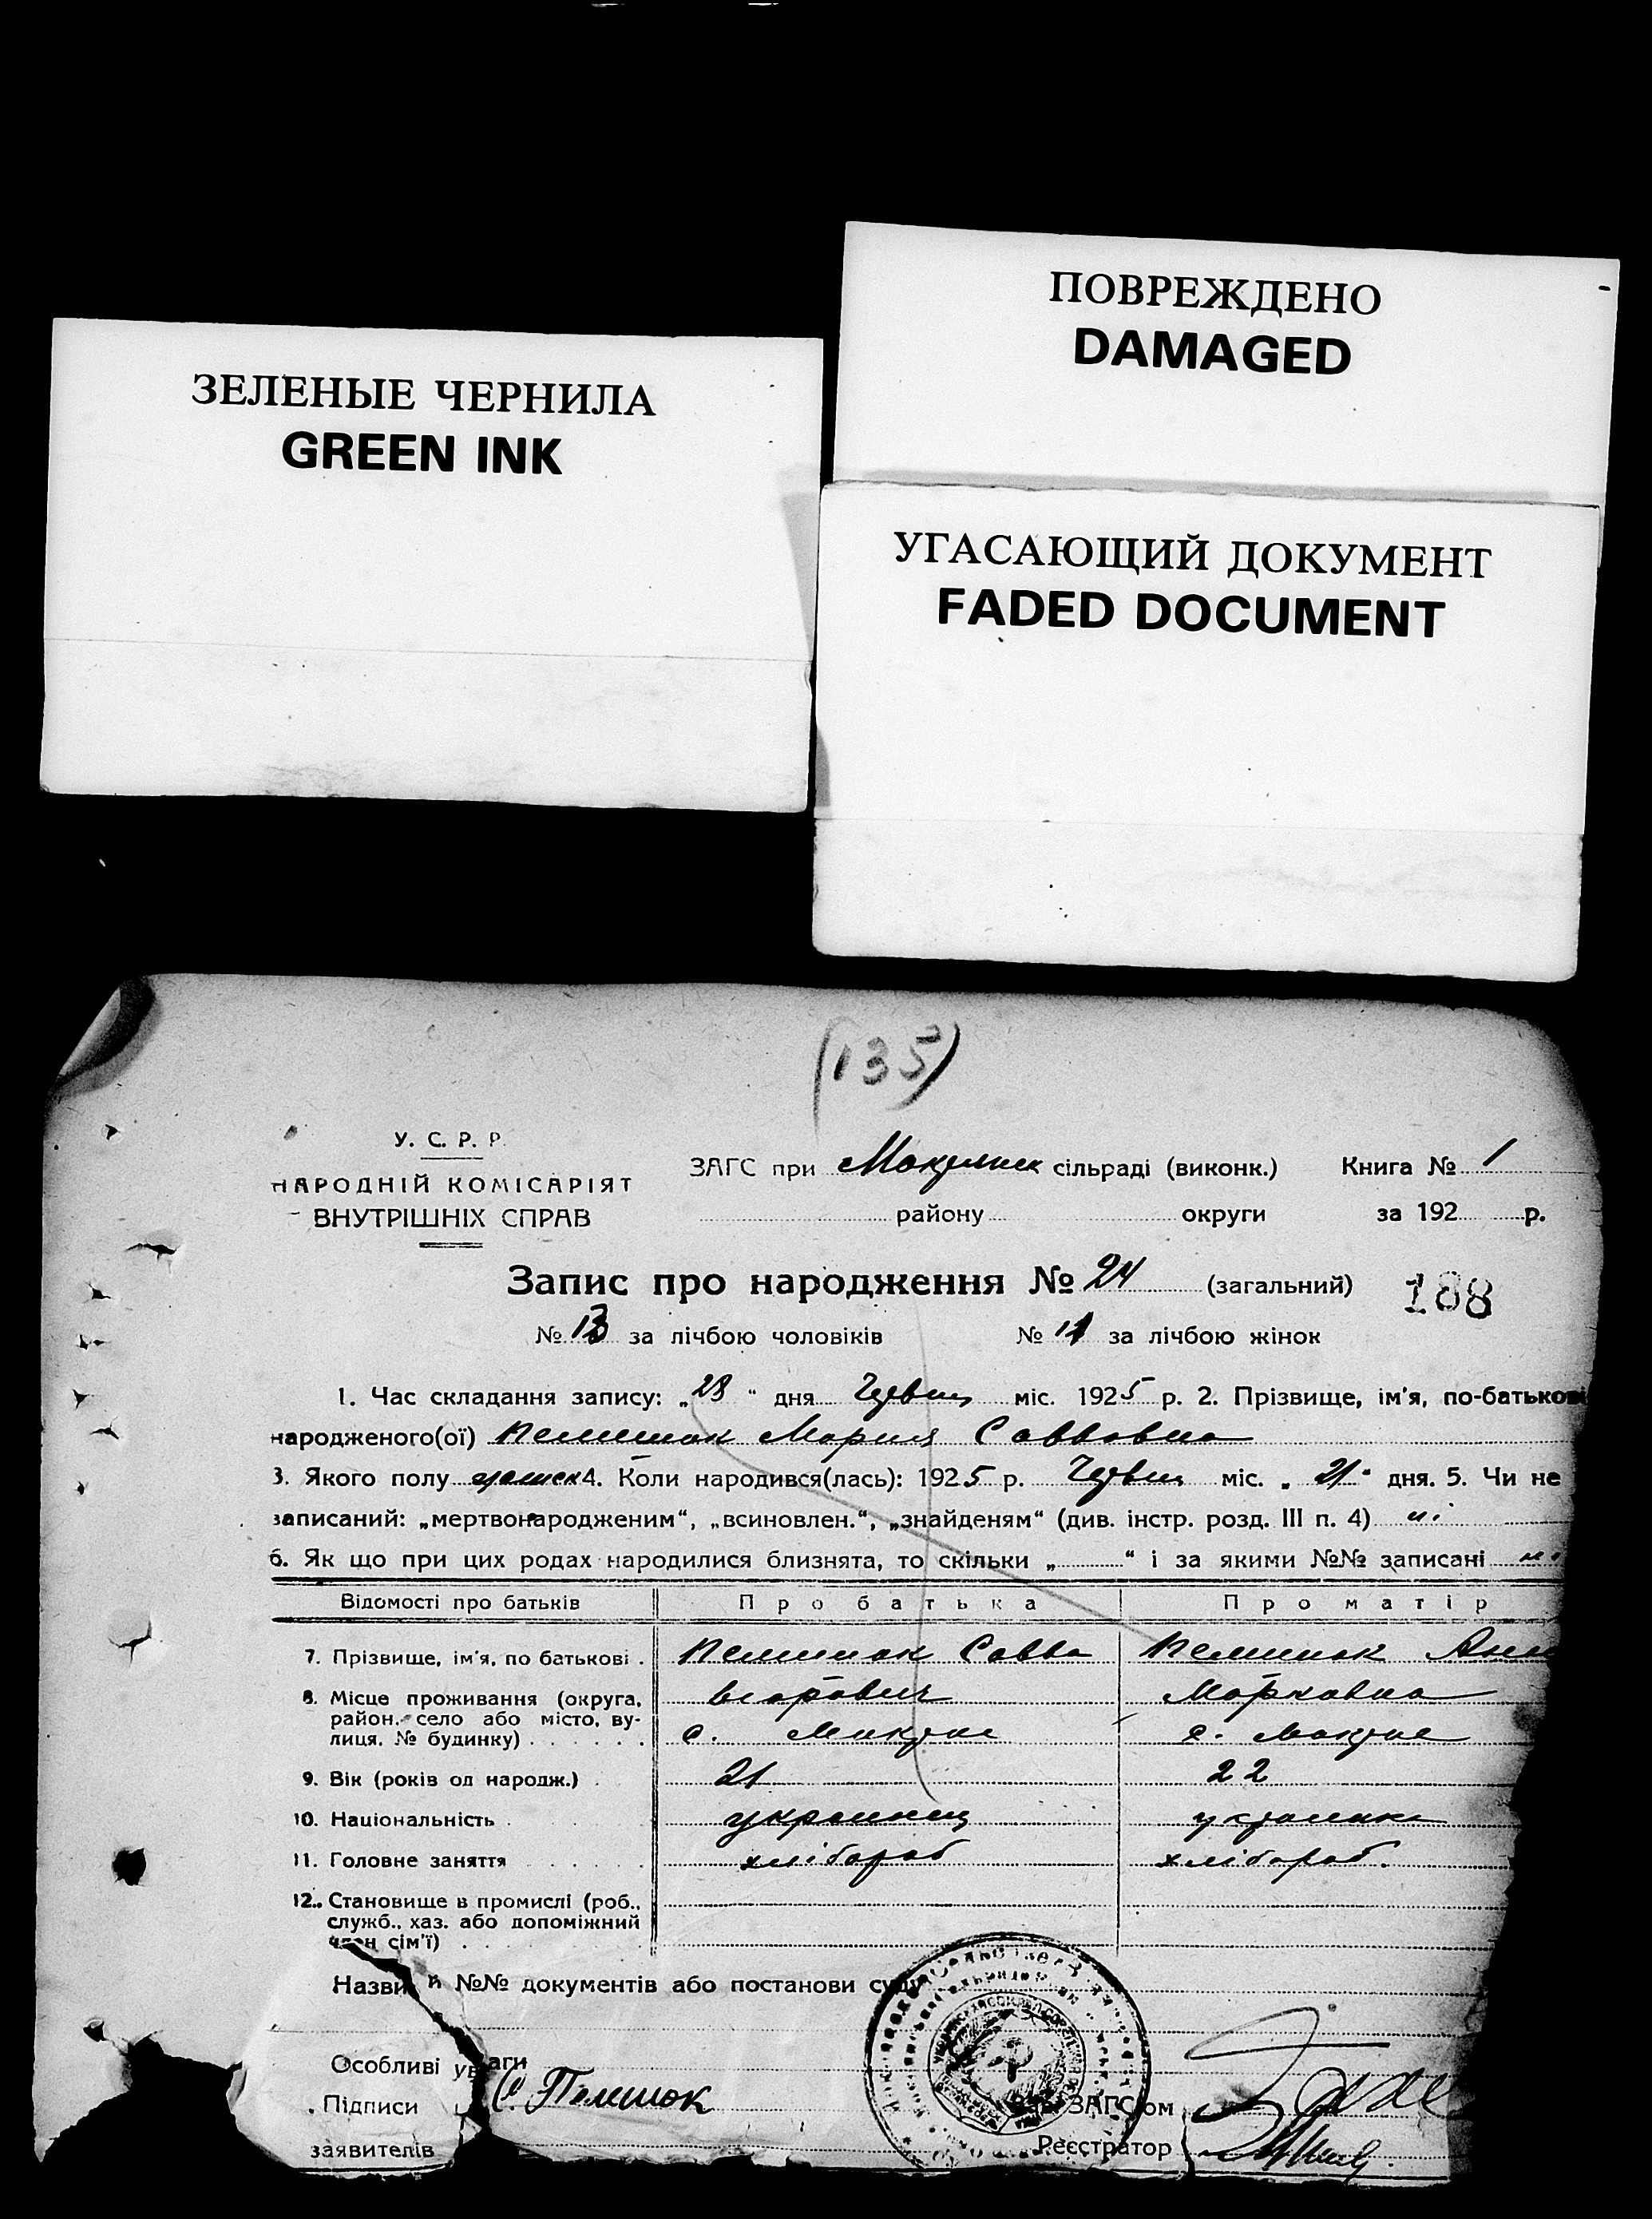 ПОВРЕЖДЕНО
DAMAGED
ЗЕЛЕНЫЕ ЧЕРНИЛА
GREEN INK
УГАСАЮЩИЙ ДОКУМЕНТ
FADED DOCUMENT
(135)
У. С. Р. Р.
НАРОДНІЙ КОМІСАРІЯТ
ВНУТРІШНІХ СПРАВ
ЗАГС при сільраді (виконк.) Книга № 1
району округи за 192 р.
Запис про народження № 24 (загальний) 188
№ 13 за лічбою чоловіків № 11 за лічбою жінок
1. Час складання запису: „23" дня міс. 1925 р. 2. Прізвище, ім'я, по-батькові
народженого(ої) Мария Саввовна
3. Якого полу 4. Коли народився(лась): 1925 р. міс. „21" дня. 5. Чи не
записаний: „мертвонародженим", „всиновлен.", „знайденям" (див. інстр. розд. III п. 4) ні
6. Як що при цих родах народилися близнята, то скільки „ " і за якими №№ записані ні
Відомості про батьків Про батька Про матір
7. Прізвище, ім'я, по батькові . Савва
8. Місце проживання (округа, Марковна
район, село або місто, ву-
лиця, № будинку) . . . . . . с. с.
9. Вік (років од народж.) . 21 22
10. Національність . украинец
11. Головне заняття . . . . . хлібороб хлібороб.
12. Становище в промислі (роб.,
служб., хаз. або допоміжний
член сім'ї) . . . . .
Назви й №№ документів або постанови суду
Особливі уваги
Підписи С. Пелешок Зав. ЗАГС'ом
заявителів Реєстратор